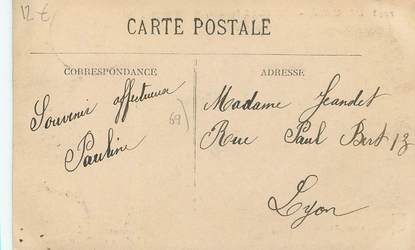 12 €
CARTE POSTALE
CORRESPONDANCE
ADRESSE
Souvenir affectueux
Pauline
69
Madame Jeandet
Rue Paul Bert 13
Lyon